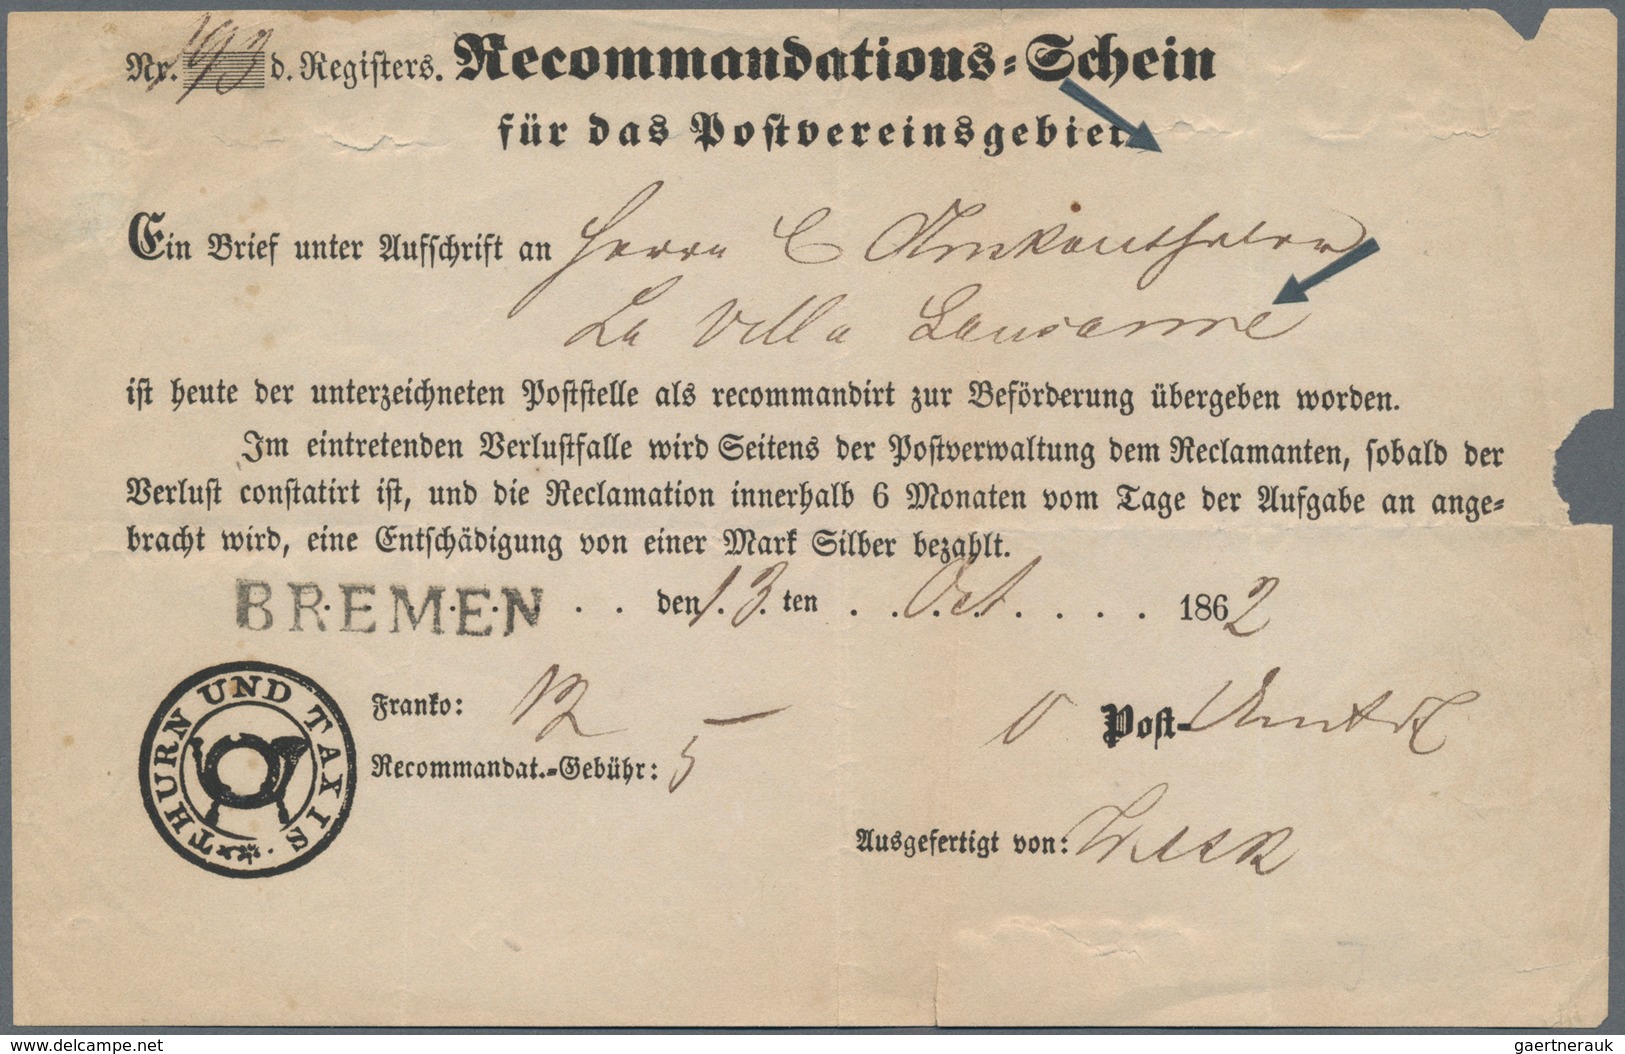 Nr. 193 d. Registers. Recommandations-Schein
für das Postvereinsgebiet
Ein Brief unter Aufschrift an Herrn C
La Villa Lausanne
ist heute der unterzeichneten Poststelle als recommandirt zur Beförderung übergeben worden.
Im eintretenden Verlustfalle wird Seitens der Postverwaltung dem Reclamanten, sobald der
Verlust constatirt ist, und die Reclamation innerhalb 6 Monaten vom Tage der Aufgabe an ange-
bracht wird, eine Entschädigung von einer Mark Silber bezahlt.
BREMEN . . den 13. ten . . Oct. . . . . 1862
THURN UND TAXIS
Franko:
Post-
Recommandat.-Gebühr: 5
Ausgefertigt von:
www.delcampe.net
gaertnerauk